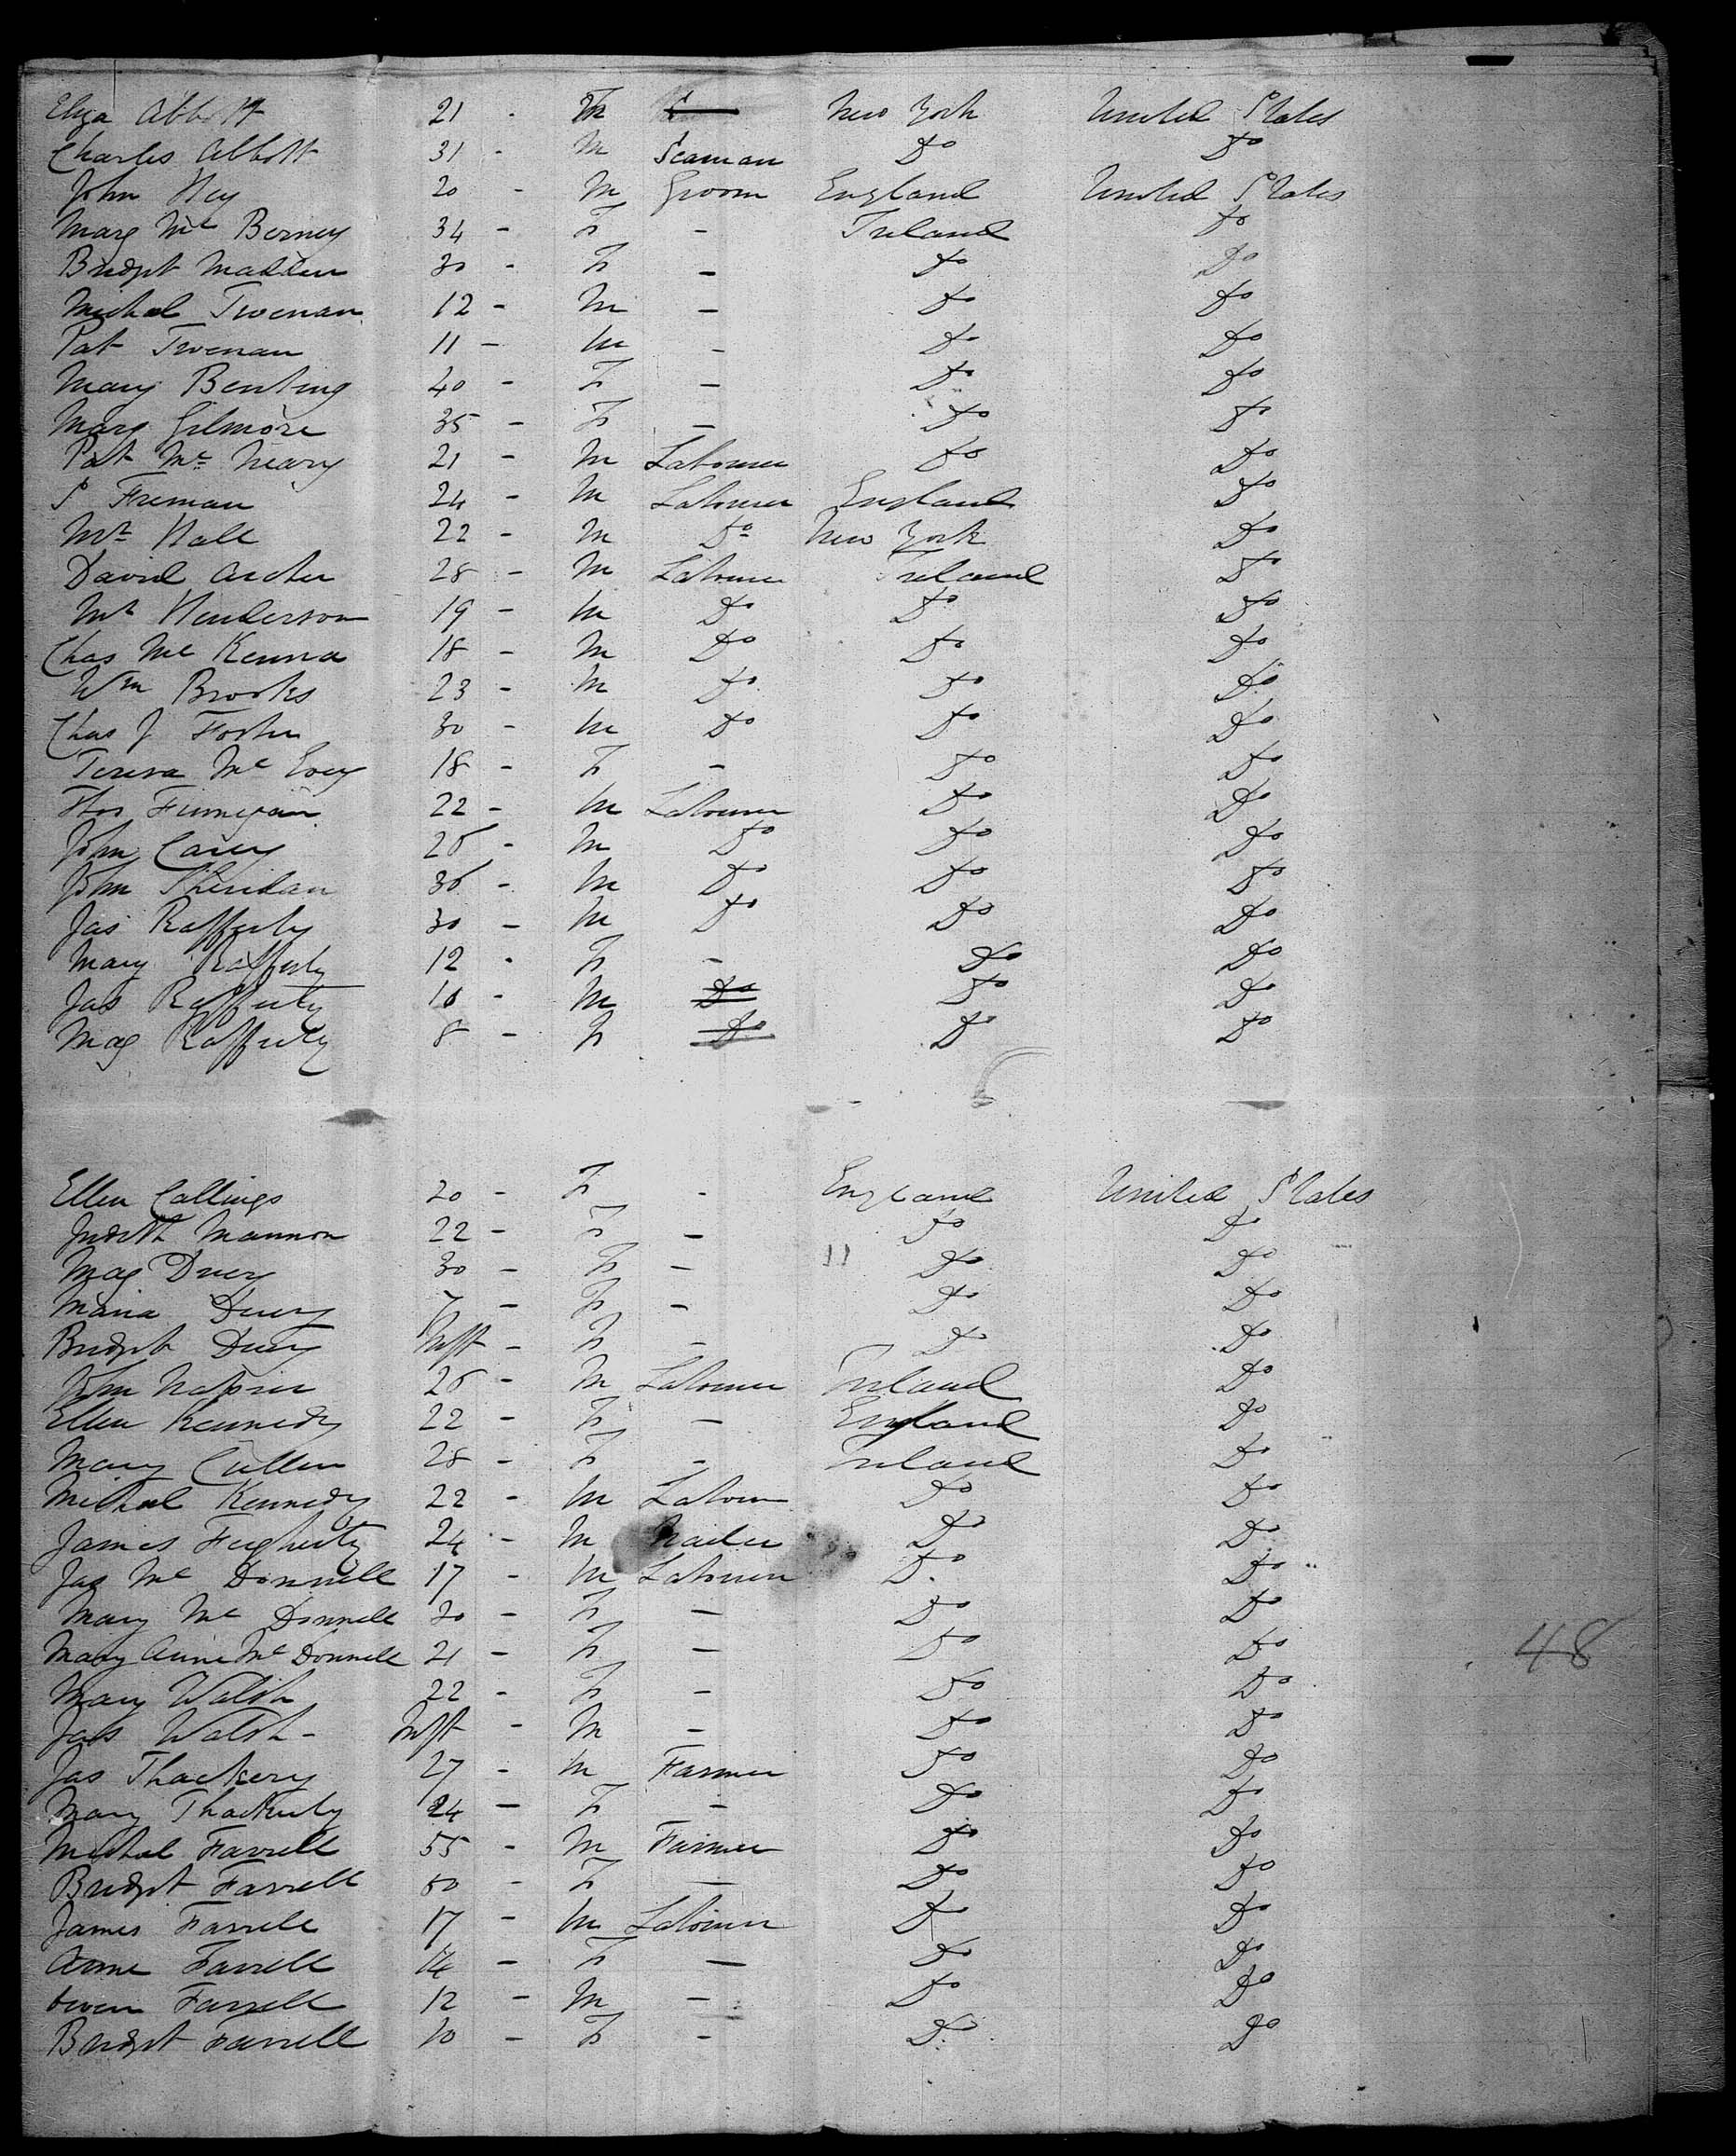 Eliza Abbott 21 - F New York United States
Charles Abbott 31 - M Seaman Do Do
John Hey 20 - M Groom England United States
Marg Mc Berney 34 - F - Ireland Do
Bridget Madden 30 - F - Do Do
Michal 12 - M - Do Do
Pat 11 - M - Do Do
Mary Benting 40 - F - Do Do
Marg Gilmore 35 - F - Do Do
Pat Mc Neary 21 - M Labourer Do Do
S Freeman 24 - M Labourer England Do
Mr Hall 22 - M Do New York Do
David Archer 28 - M Labourer Ireland Do
Mr Henderson 19 - M Do Do Do
Chas Mc Kenna 18 - M Do Do Do
Wm Brooks 23 - M Do Do Do
Chas J Foster 30 - M Do Do Do
Teresa Mc Evey 18 - F - Do Do
Thos Finnegan 22 - M Labourer Do Do
John Carey 26 - M Do Do Do
John Sheridan 36 - M Do Do Do
Jas Rafferty 30 - M Do Do Do
Mary Rafferty 12 - F - Do Do
Jas Rafferty 10 - M Do Do Do
Mag Rafferty 8 - F Do Do Do
Ellen Collings 20 - F - England United States
Judith Mannon 22 - F - Do Do
Mag Duery 30 - F - Do Do
Maria Duery 7 - F - Do Do
Bridget Duery Inft - F - Do Do
John Napier 26 - M Labourer Ireland Do
Ellen Kennedy 22 - F - England Do
Mary Cullen 28 - F - Ireland Do
Michael Kennedy 22 - M Labour Do Do
James Fegherty 24 - M Nailer Do Do
Jas Mc Donnell 17 - M Labourer Do Do
Mary Mc Donnell 20 - F - Do Do
Mary Anne Mc Donnell 21 - F - Do Do
48
Mary Walsh 22 - F - Do Do
Jas Walsh - Inft - M - Do Do
Jas Thackery 27 - M Farmer Do Do
Mary Thackerty 24 - F - Do Do
Michal Farrell 55 - M Farmer Do Do
Bridget Farrell 50 - F - Do Do
James Farrell 17 - M Labourer Do Do
Anne Farrell 14 - F - Do Do
Owen Farrell 12 - M - Do Do
Bridget Farrell 10 - F - Do Do